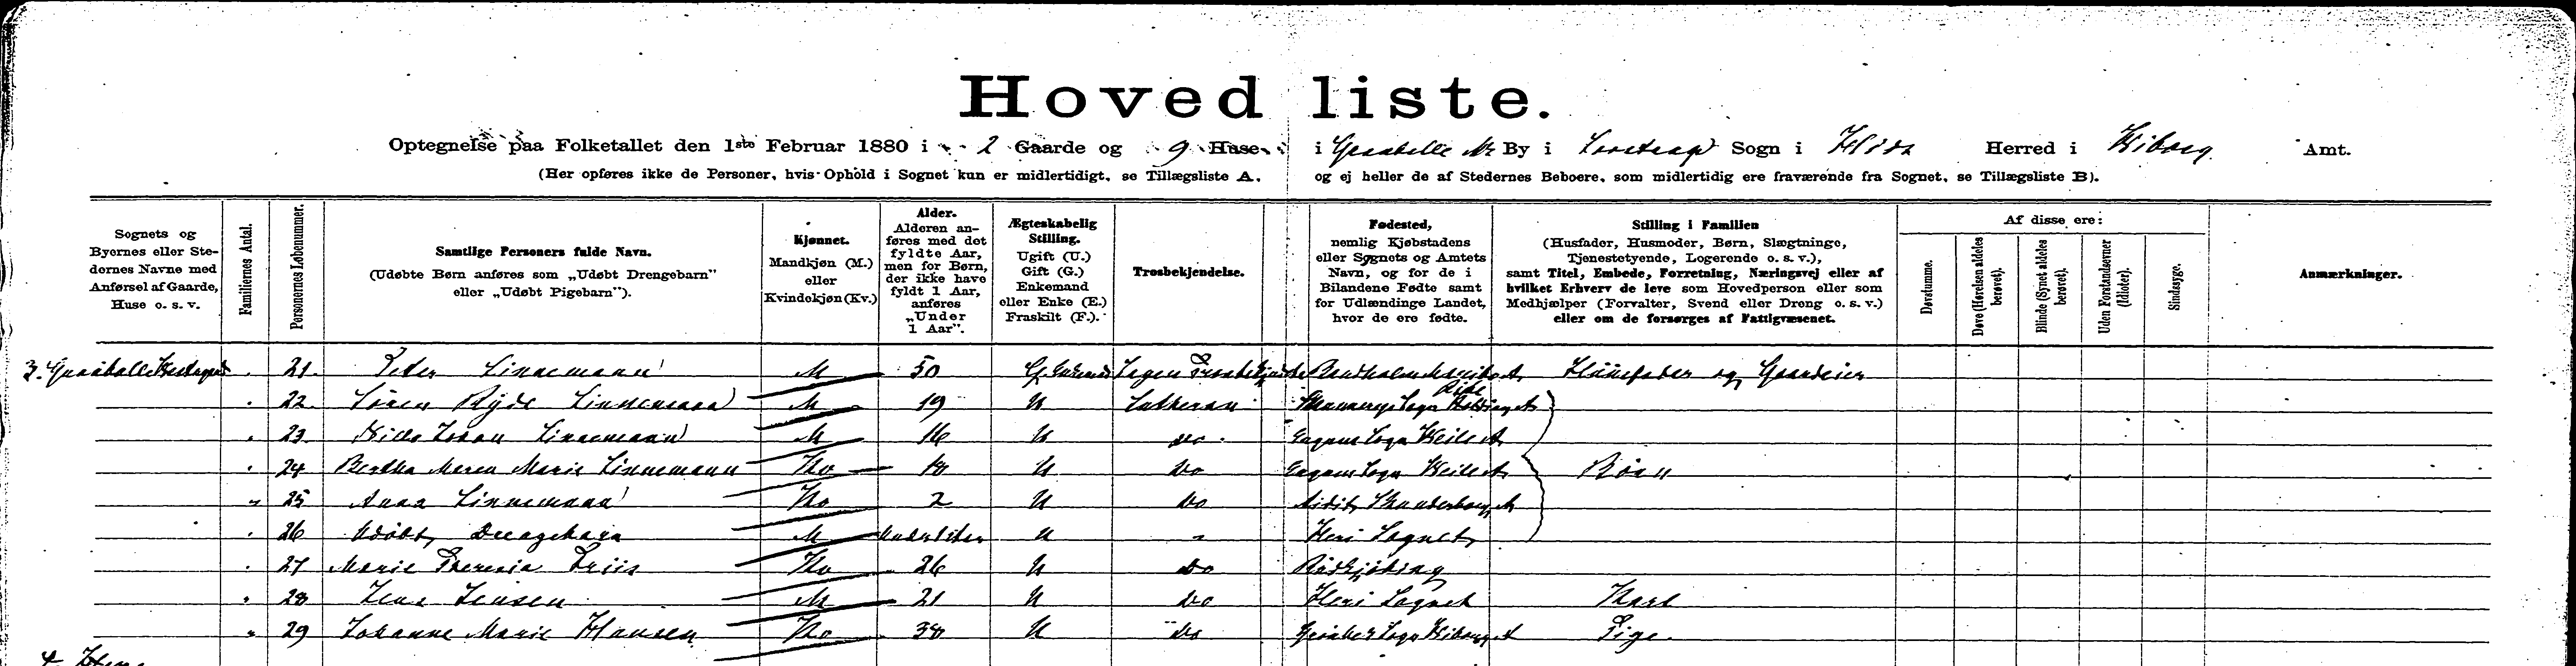 Hovedliste.
Optegnelse paa Folketallet den 1ste Februar 1880 i 2 Gaarde og 9 Huse i Graaballe By i Sogn i Hids Herred i Wiborg Amt.
(Her opføres ikke de Personer, hvis Ophold i Sognet kun er midlertidigt, se Tillægsliste A, og ej heller de af Stedernes Beboere, som midlertidig ere fraværende fra Sognet, se Tillægsliste B).
Sognets og Byernes eller Stedernes Navne med Anførsel af Gaarde, Huse o. s. v.
Familiernes Antal.
Personernes Løbenummer.
Samtlige Personers fulde Navn.
(Udøbte Børn anføres som „Udøbt Drengebarn" eller „Udøbt Pigebarn").
Kjønnet.
Mandkjøn (M.) eller Kvindekjøn (Kv.)
Alder.
Alderen anføres med det fyldte Aar, men for Børn, der ikke have fyldt 1 Aar, anføres „Under 1 Aar".
Ægteskabelig Stilling.
Ugift (U.) Gift (G.) Enkemand eller Enke (E.) Fraskilt (F.).
Trosbekjendelse.
Fødested,
nemlig Kjøbstadens eller Sognets og Amtets Navn, og for de i Bilandene Fødte samt for Udlændinge Landet, hvor de ere fødte.
Stilling i Familien
(Husfader, Husmoder, Børn, Slægtninge, Tjenestetyende, Logerende o. s. v.),
samt Titel, Embede, Forretning, Næringsvej eller af hvilket Erhverv de leve som Hovedperson eller som Medhjælper (Forvalter, Svend eller Dreng o. s. v.) eller om de forsørges af Fattigvæsenet.
Af disse ere:
Døvstumme.
Døve (Hørelsen aldeles berøvet).
Blinde (Synet aldeles berøvet).
Uden Forstandsevner (Idioter).
Sindssyge.
Anmærkninger.
3. 21. Peter Linnemann M 50 Ingen Husfader og Gaardeier
22. Søren Linnemann M 19 U Lutheran Sogn
23 Johan Linnemann M 16 U do Sogn Veile A
24 Bertha Maren Marie Linnemann Kv 18 U do Sogn Veile A Børn
25 Anna Linnemann Kv 2 U do Skanderborg A
26 Udøbt Drengebarn M Under 1 Aar U Heri Sognet
27 Marie Theresia Friis Kv 26 U do
28 Jens Jensen M 21 U do Heri Sognet Karl
29 Johanne Marie Hansen Kv 38 U do Sogn Wiborg A Pige